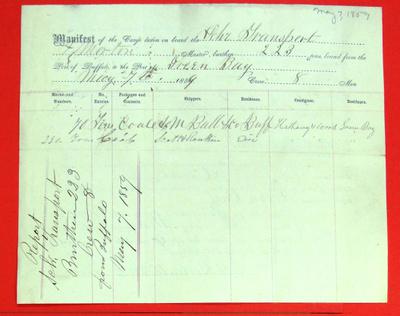 May 7, 1859
Manifest of the Cargo taken on board the Schr Transport
Master, burthen 223 tons, bound from the
Port of Buffalo, to the Port of Green Bay
May 7th 1859 Crew 8 Men
Marks and Numbers. No. Entries Packages and Contents. Shippers. Residence. Consignee. Residence.
70 Tons Coal Buff Green Bay
230 Tons Coal
Report
Schr Transport
Burthen 223
Crew 8
from Buffalo
May 7, 1859